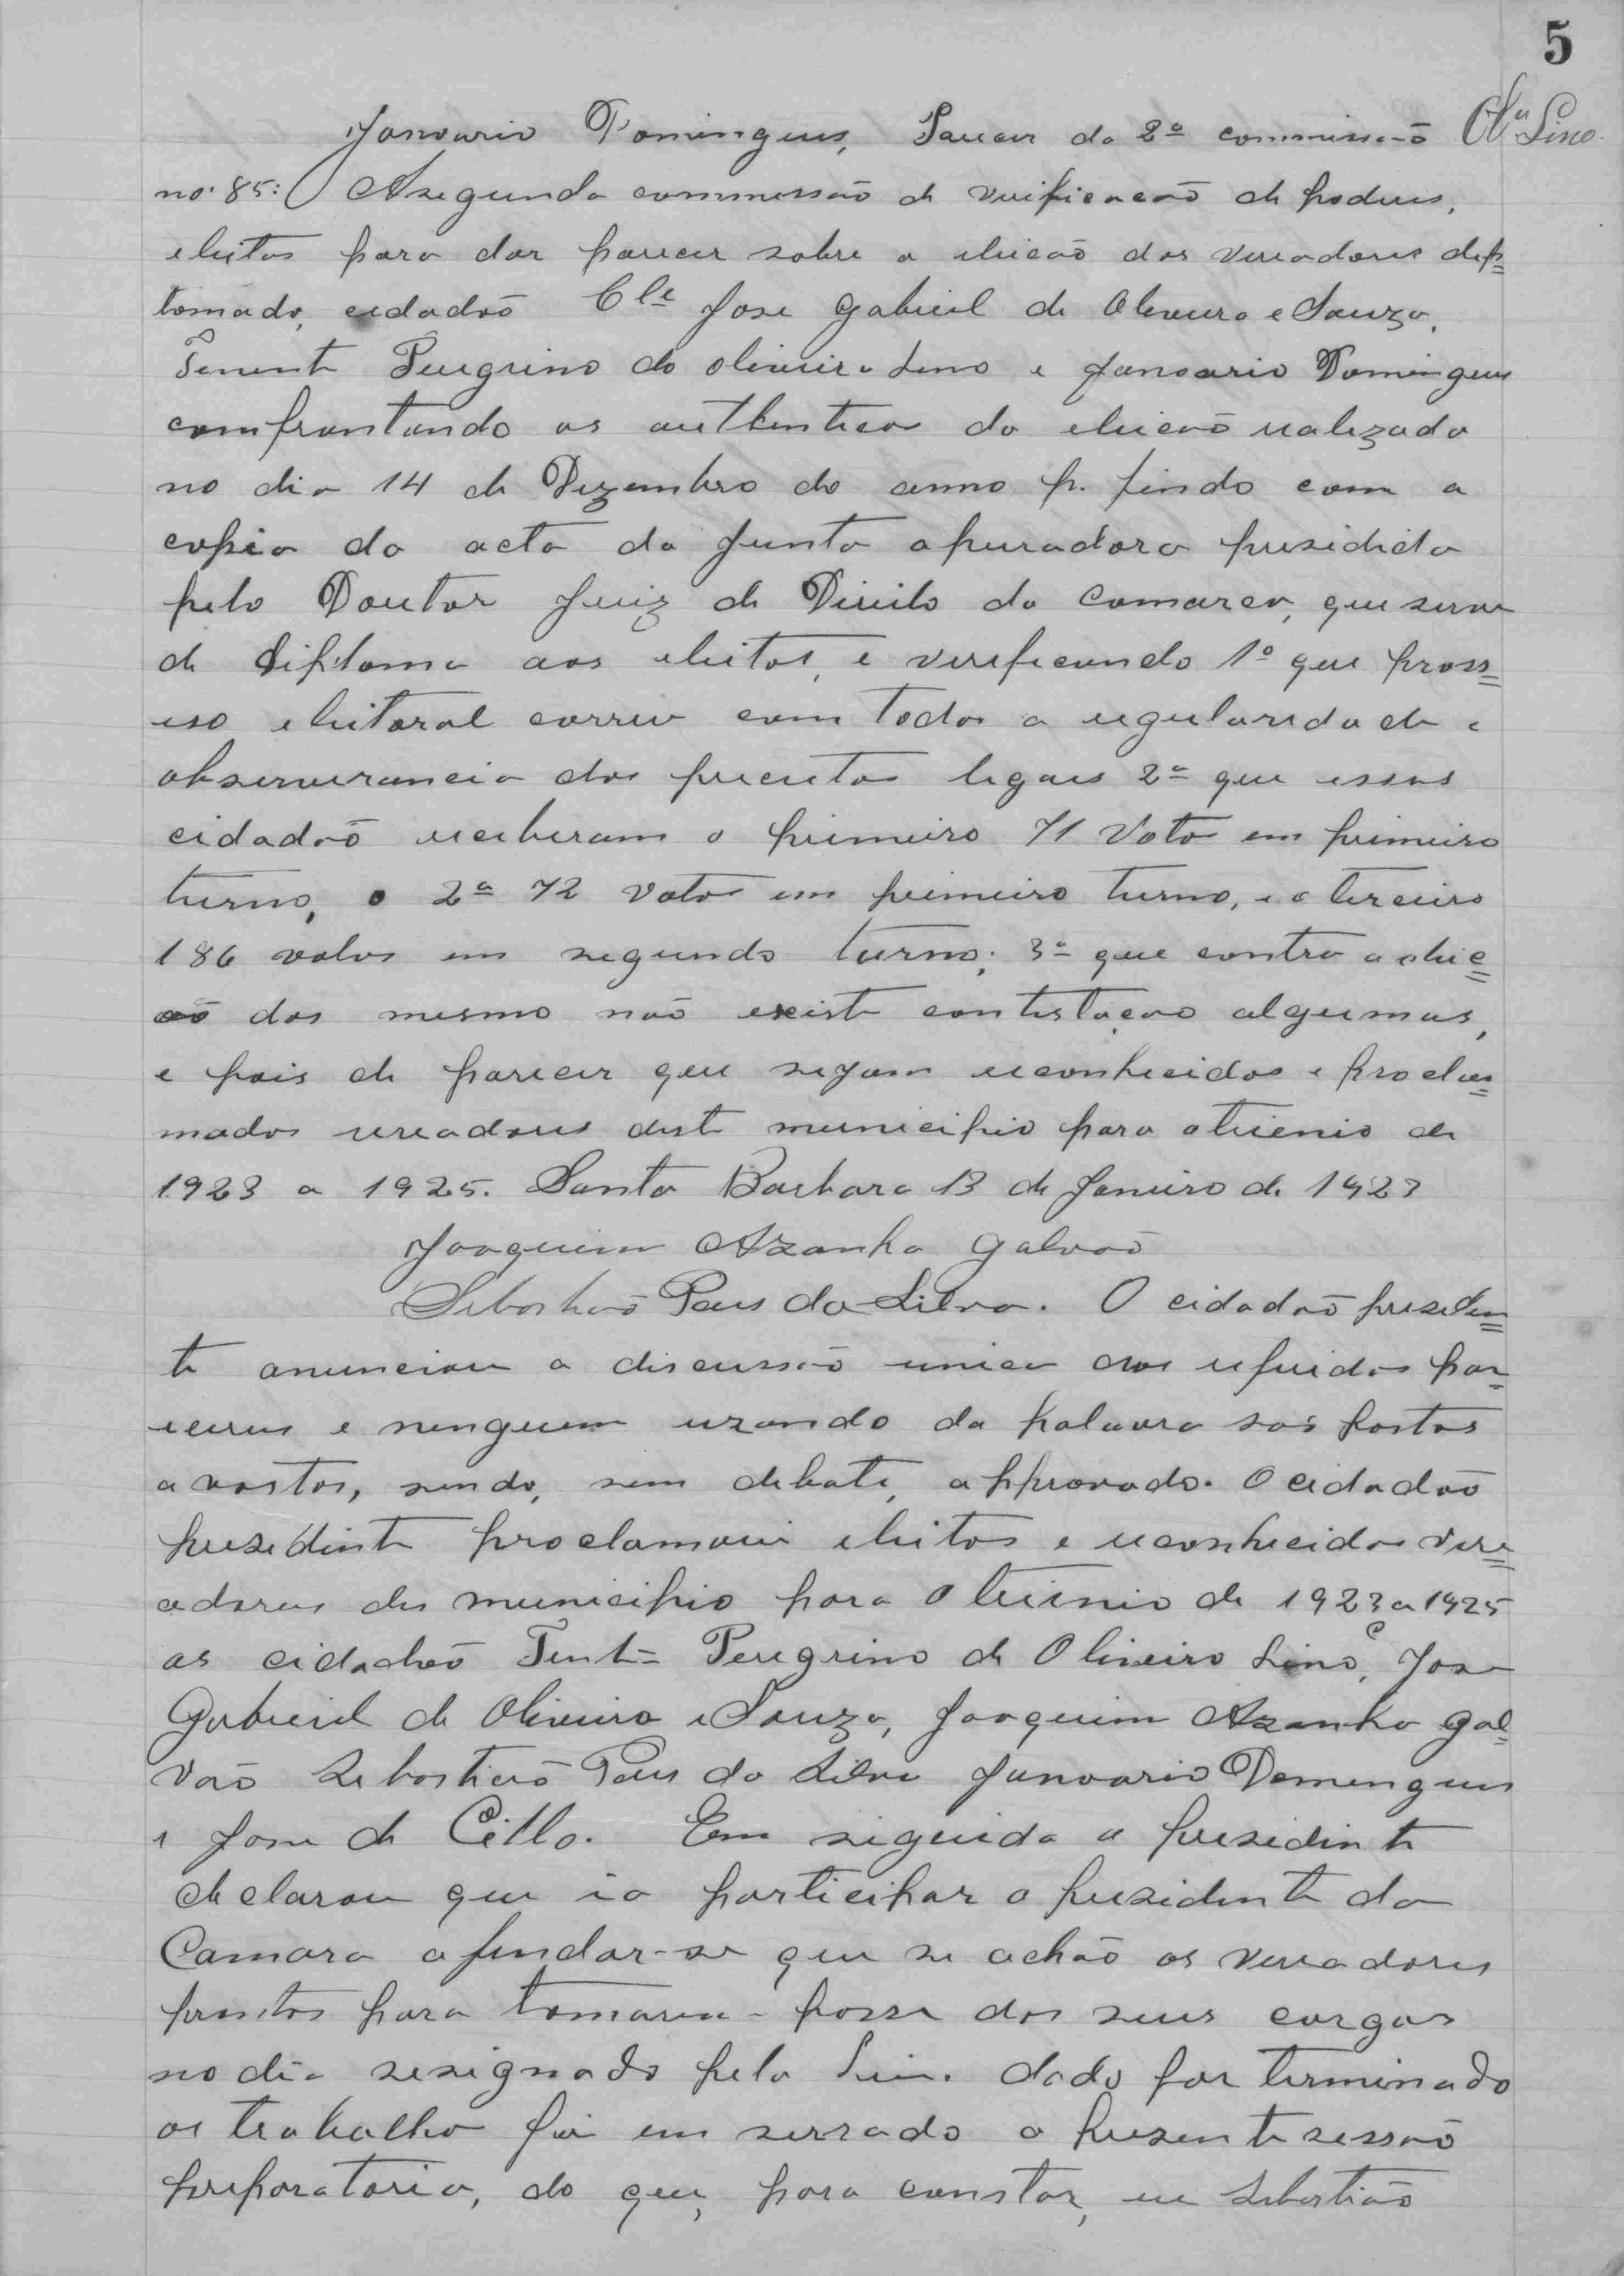 5
Januario Domingues, Parecer da 2ª commissão
Lino
no. 85: A segunda commessão de verificacão de poderes,
eleitos para dar parecer sobre a eleicão dos vereadores dep=
tomado, cidadão Cle Jose Gabriel de Oliveira e Souza,
Tenente Peregrino de oliveira Lino e Januario Domingues
comfrontando as authenticas da eleicão realezada
no dia 14 de Dezembro do anno p. findo com a
copia da acta da Junta apuradora presidida
pelo Doutor Juiz de Direito da Comarca, que serve
de diploma aos eleitos, e verificando 1º que pross=
eso eleitoral correu com todos a regularidade e
observerancia dos preceitos legaes 2ª que essas
cidadão receberam o primeiro 71 Votos em primeiro
turno, o 2ª 72 votos em primeiro turno, e o terceiro
186 votos em segundo turno; 3ª que contra a eleic=
ão dos mesmo não existe contestação algumas,
e pois de parecer que sejam reconhecidos e procla=
mados vereadores deste municipio para o trienio de
1923 a 1925. Santa Barbara 13 de Janeiro de 1923
Joaquim Azanha Galvão
Sebastião Paes da Silva. O cidadão presiden=
te anunciou a discussão unica aos referidos par=
eceres e ninguem uzando da palavra são postos
a vostos, sendo, sem debate, approvado. O cidadão
presidente proclamou eleitos e reconhecidos vere=
adores do municipio para o trienio de 1923 a 1925
os cidadão Tente Peregrino de Oliveira Lino, Jose
Gabriel de Oliveira e Souza, Joaquim Azanha Gal=
vão Sebastião Paes da Silva Januario Domingues
e Jose de Cillo. Em siguida o presidente
declarou que ia participar o presidente da
Camara a fendar-se que se achão os vereadores
prontos para tomarem posse dos seus cargos
no dia sesignado pela Lei. dado por terminado
os trabalho foi em serrado a presente sessão
preparatoria, do que, para constar, eu Sebastião